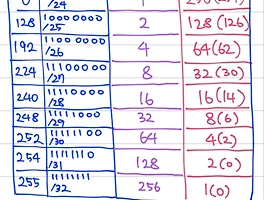 /24 1
128 10000000 2 128 (126)
/25
192 11000000 4 64 (62)
/26
224 11100000 8 32 (30)
/27
240 11110000 16 16 (14)
/28
248 11111000 32 8 (6)
/29
252 11111100 64 4 (2)
/30
254 11111110 128 2 (0)
/31
255 11111111 256 1 (0)
/32